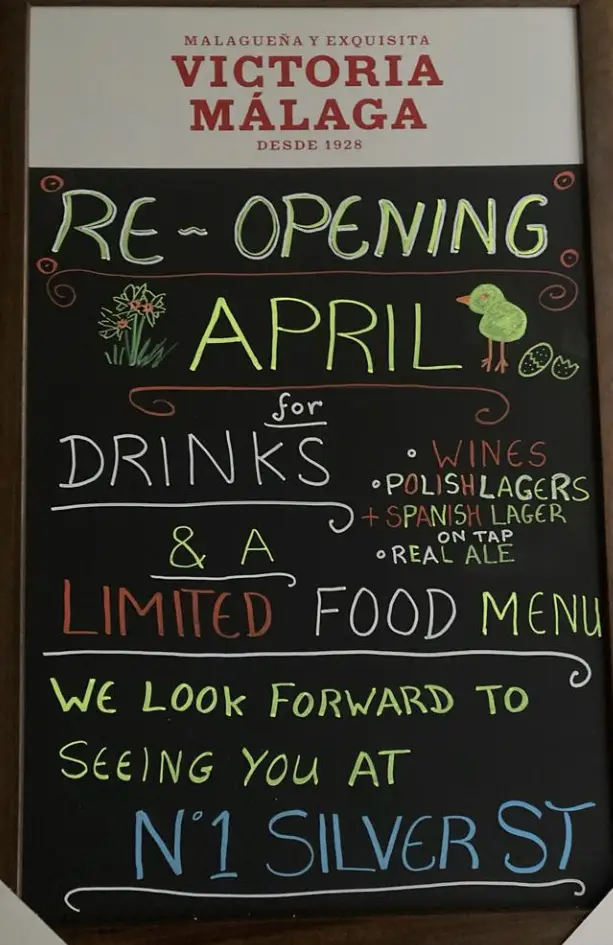 MALAGUEÑA Y EXQUISITA
VICTORIA
MÁLAGA
DESDE 1928
RE-OPENING
APRIL
for
DRINKS
• WINES
• POLISH LAGERS
+ SPANISH LAGER
ON TAP
• REAL ALE
& A
LIMITED FOOD MENU
WE LOOK FORWARD TO
SEEING YOU AT
N°1 SILVER ST